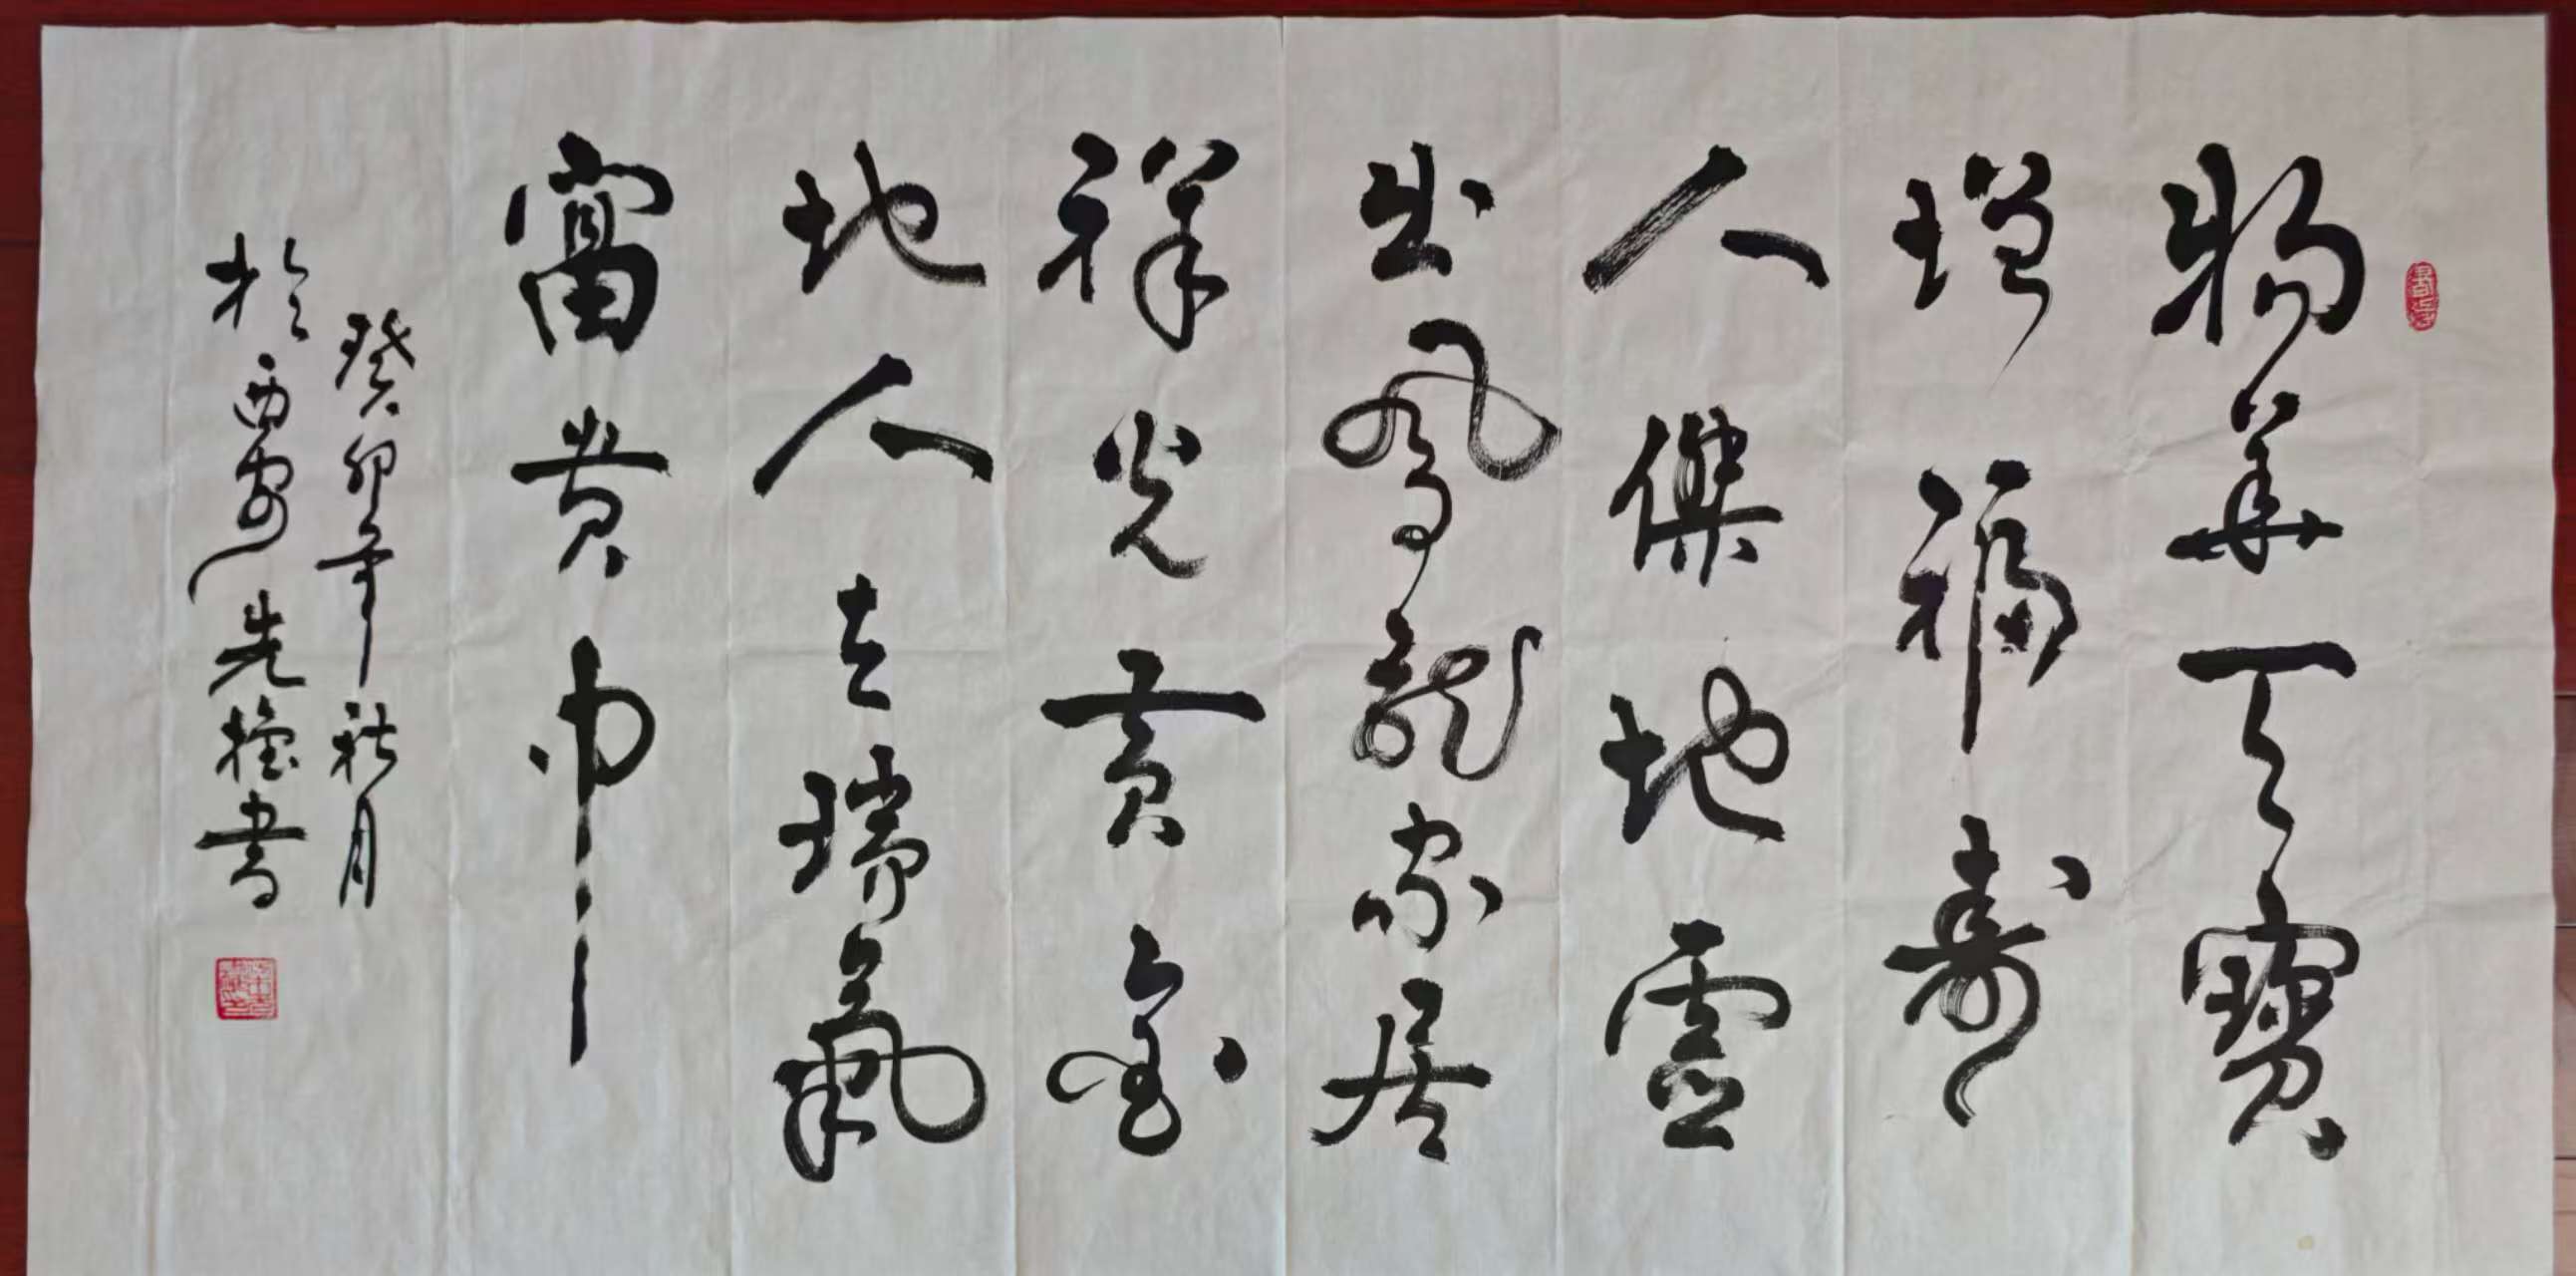 物華天寶
增福壽
人傑地靈
出鳳龍家居
祥光黃金
地人在瑞氣
富貴中
癸卯年秋月
於西安先權書